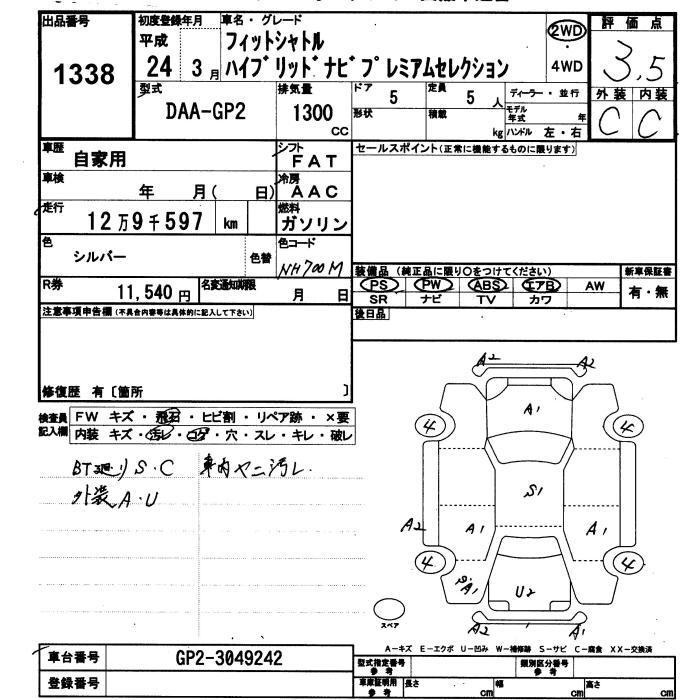 出品番号
1338
初度登録年月
平成
24 3月
車名・グレード
フィットシャトル
ハイブリッドナビプレミアムセレクション
2WD
4WD
評価点
3.5
外装 内装
C C
型式
DAA-GP2
排気量
1300
cc
ドア 5
定員 5 人
形状
積載 kg
ディーラー・並行
モデル年式 年
ハンドル 左・右
車歴
自家用
シフト
FAT
車検
年 月( 日)
冷房
AAC
走行
12万9千597 km
燃料
ガソリン
色
シルバー
色替
色コード
NH700M
R券
11,540円
名変通知期限
月 日
セールスポイント(正常に機能するものに限ります)
装備品 (純正品に限り○をつけてください)
PS PW ABS エアB AW
SR ナビ TV カワ
新車保証書
有・無
後日品
注意事項申告欄(不具合内容等は具体的に記入して下さい)
修復歴 有〔箇所 〕
検査員
記入欄
FW キズ・飛石・ヒビ割・リペア跡・×要
内装 キズ・汚レ・コゲ・穴・スレ・キレ・破レ
BT廻りS・C
車内ヤニ汚レ
外装A・U
A2 A2
A1
4 4
S1
A2 A1 A1
4 4
S・A1
U2
A2 A1
スペア
A-キズ E-エクボ U-凹み W-補修跡 S-サビ C-腐食 XX-交換済
車台番号
GP2-3049242
登録番号
型式指定番号
参考
類別区分番号
参考
車庫証明用
参考
長さ cm 幅 cm 高さ cm